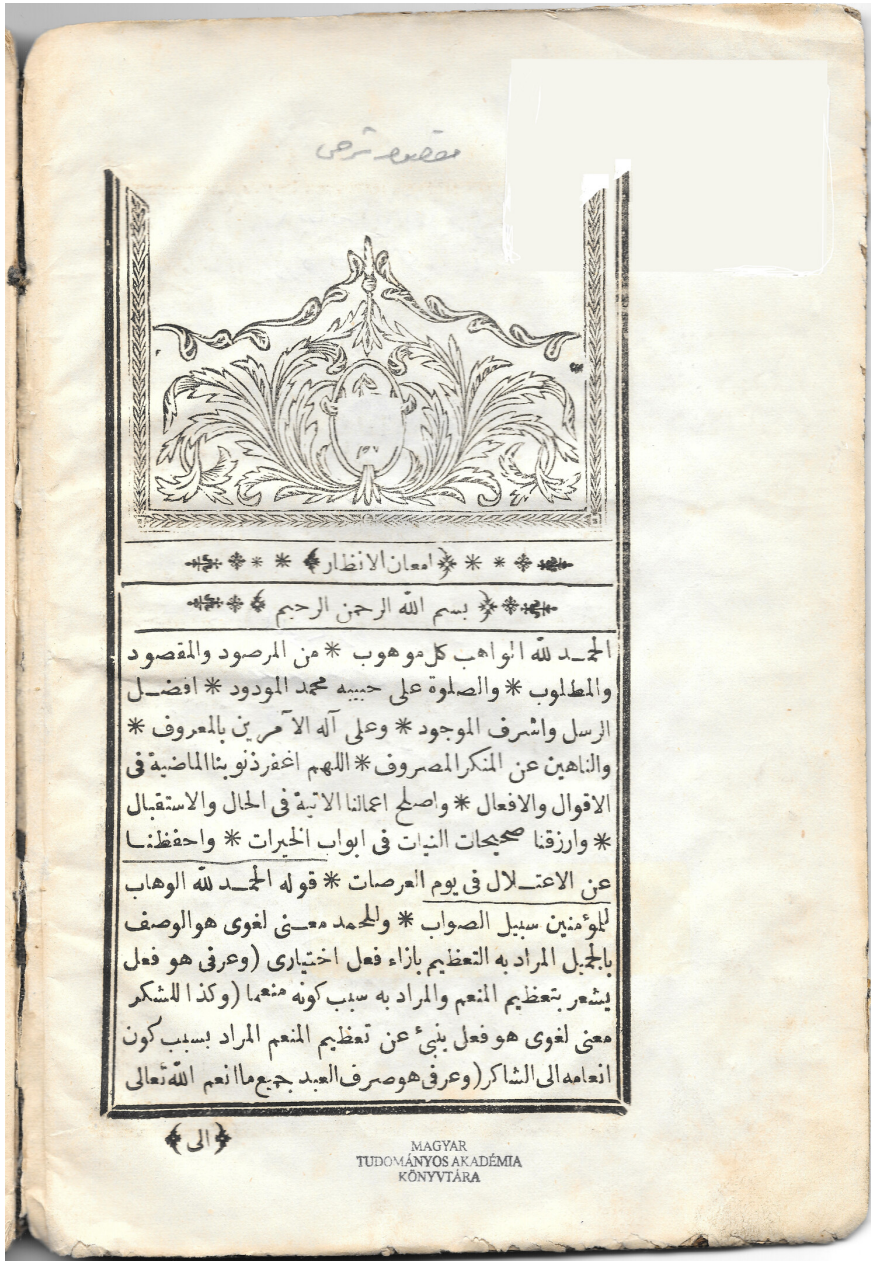 مقصود شرحی
امعان الانظار
بسم الله الرحمن الرحيم
الحمد لله الواهب كل موهوب * من المرصود والمقصود
والمطلوب * والصلوة على حبيبه محمد المودود * افضل
الرسل واشرف الموجود * وعلى آله الآمرين بالمعروف *
والناهين عن المنكر المصروف * اللهم اغفر ذنوبنا الماضية فى
الاقوال والافعال * واصلح اعمالنا الاتية فى الحال والاستقبال
* وارزقنا صحيحات النيات فى ابواب الخيرات * واحفظنا
عن الاعتلال فى يوم العرصات * قوله الحمد لله الوهاب
للمؤمنين سبيل الصواب * وللحمد معنى لغوى هو الوصف
بالجميل المراد به التعظيم بازاء فعل اختيارى (وعرفى هو فعل
يشعر بتعظيم المنعم والمراد به سبب كونه منعما (وكذا للشكر
معنى لغوى هو فعل ينبئ عن تعظيم المنعم المراد بسبب كون
انعامه الى الشاكر (وعرفى هو صرف العبد جميع ما انعم الله تعالى
﴿الى﴾
MAGYAR
TUDOMÁNYOS AKADÉMIA
KÖNYVTÁRA